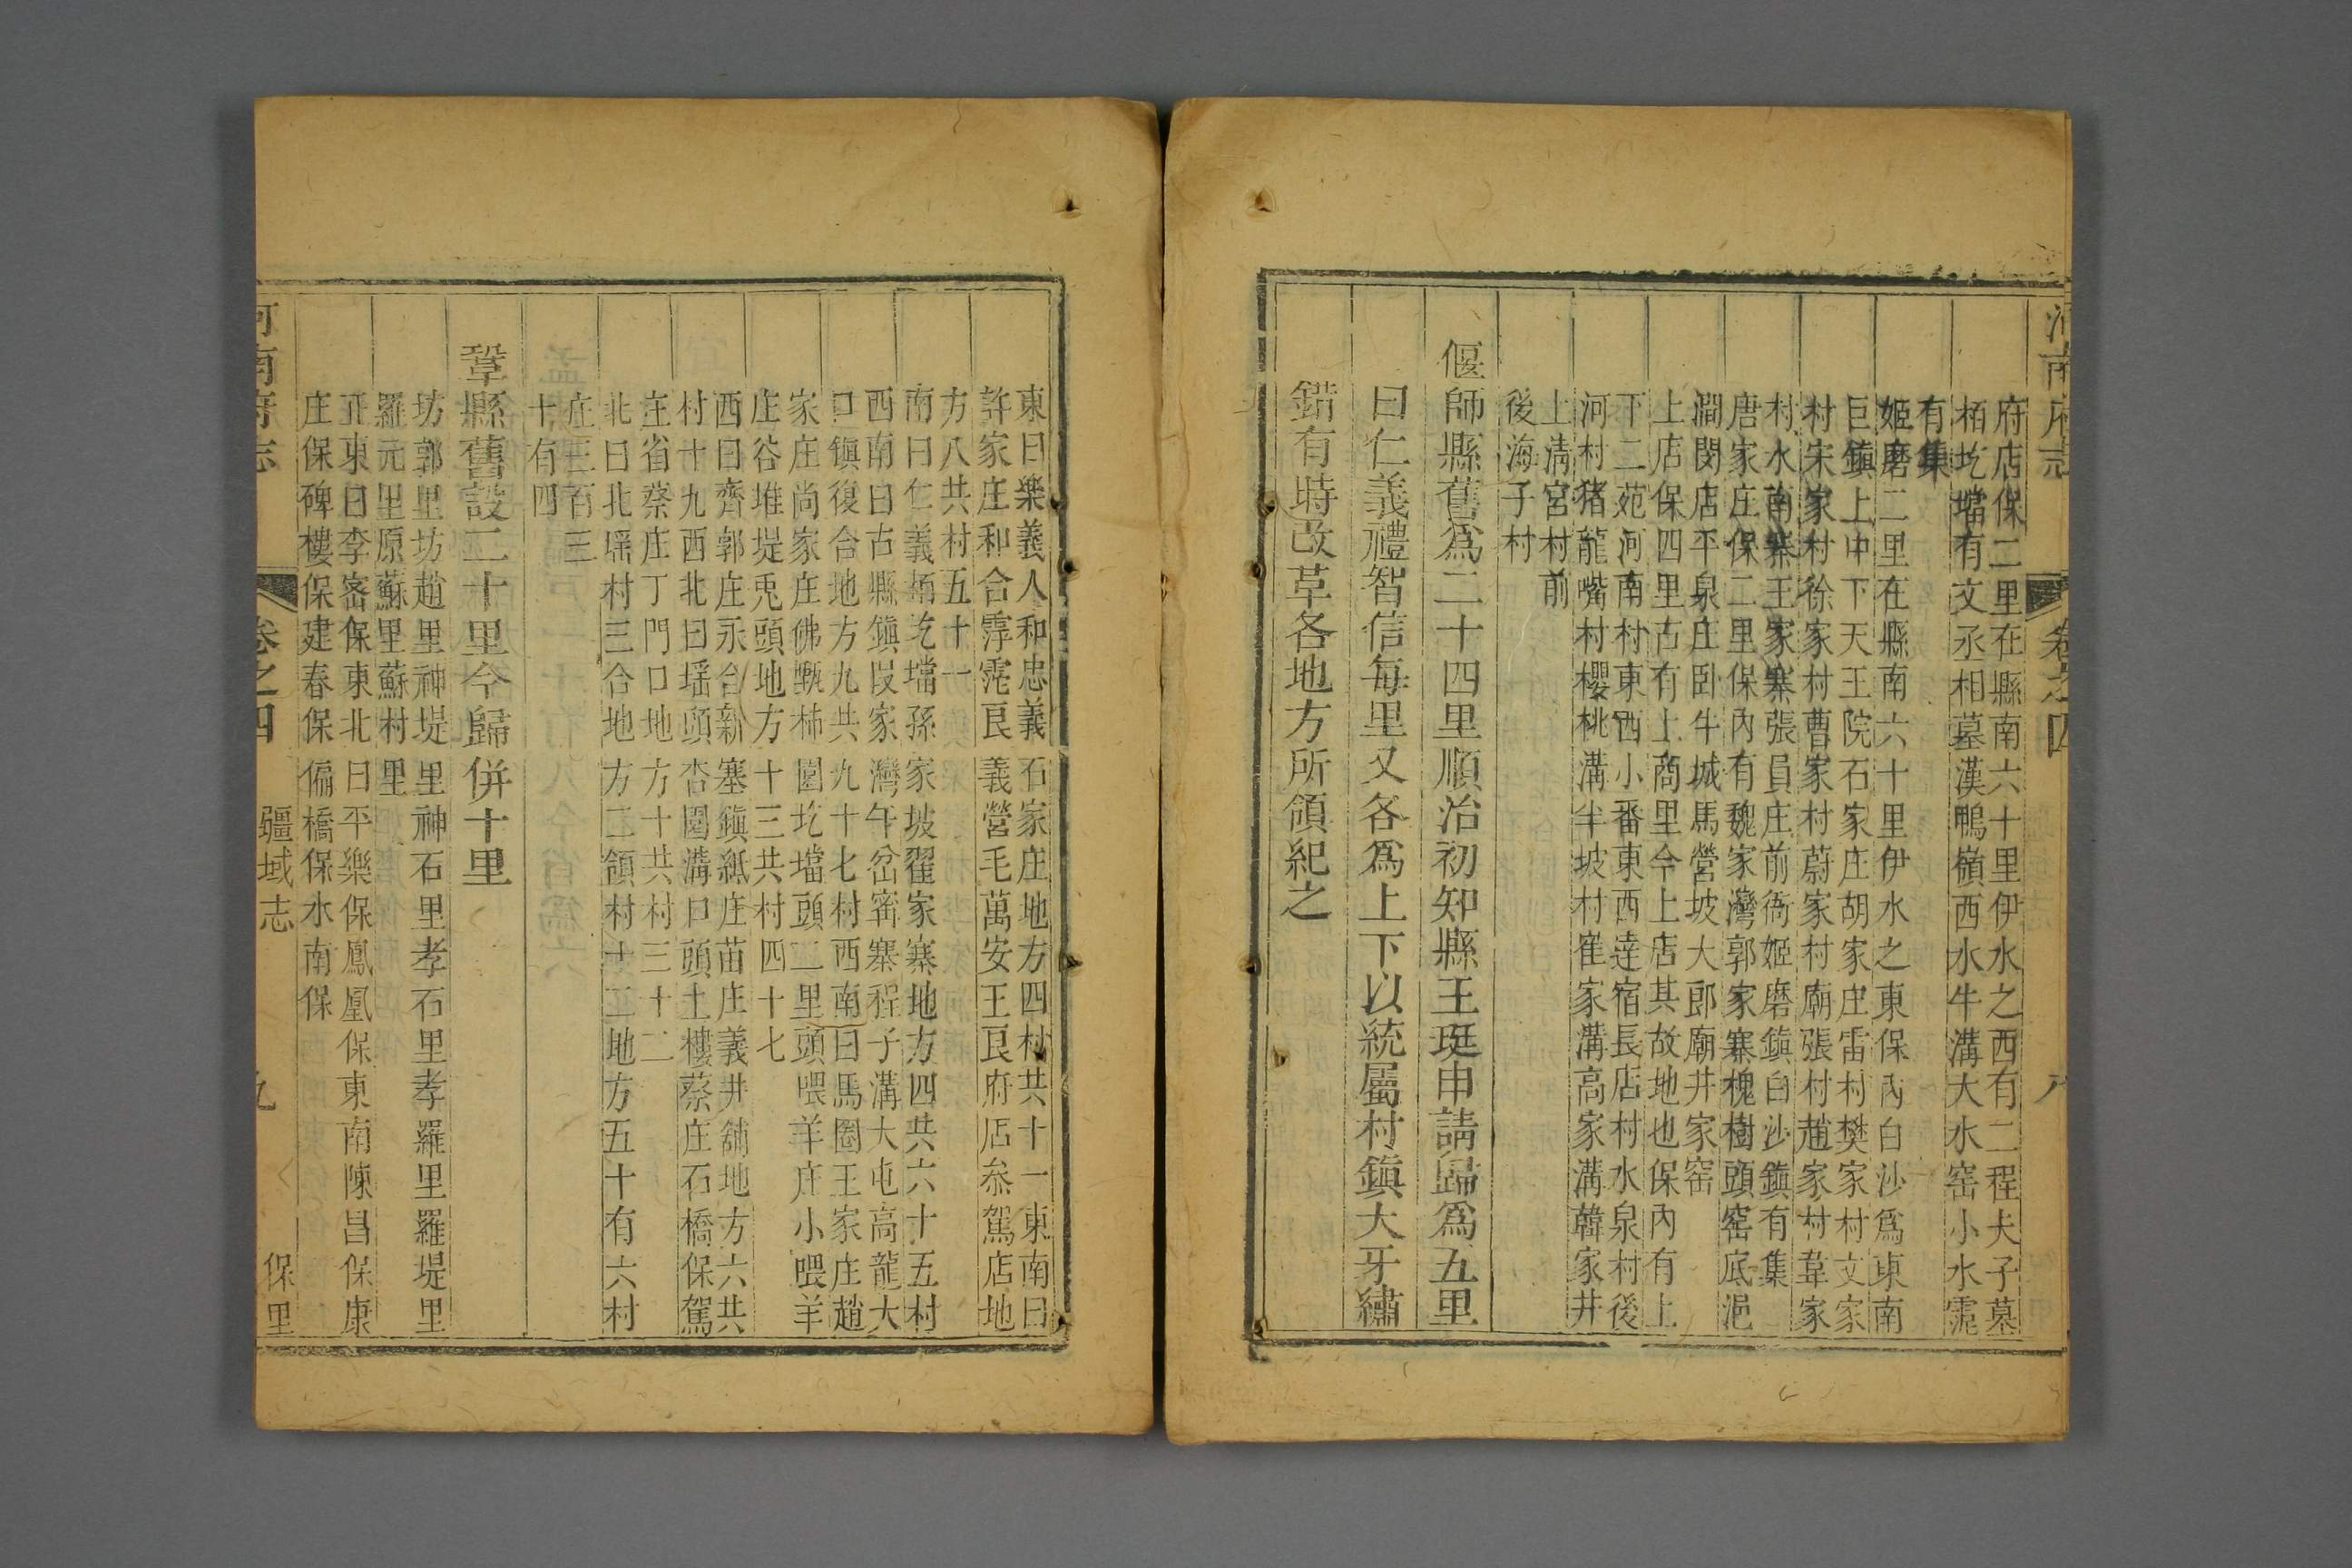 河南府志 卷之四 八
府店保二里在縣南六十里伊水之西有二程夫子墓
栢圪壋有文丞相墓漢鴨嶺西水牛溝大水窑小水窑
有集
姬磨二里在縣南六十里伊水之東保內白沙爲東南
巨鎮上中下天王院石家庄胡家庄雷村樊家村文家
村宋家村徐家村曹家村蔚家村廟張村趙家村韋家
村水南寨王家寨張員庄前衙姬磨鎮白沙鎮有集
唐家庄保二里保內有魏家灣郭家寨槐樹頭窑底浥
澗閔店平泉庄卧牛城馬營坡大郎廟井家窑
上店保四里古有上商里今上店其故地也保內有上
下二苑河南村東西小番東西逹宿長店村水泉村後
河村猪龍嘴村櫻桃溝半坡村崔家溝高家溝韓家井
上淸宮村前
後海子村
偃師縣舊爲二十四里順治初知縣王珽申請歸爲五里
曰仁義禮智信每里又各爲上下以統屬村鎮犬牙繡
錯有時改革各地方所領紀之
東曰樂義人和忠義石家庄地方四村共十一東南曰
許家庄和合雩䨓良義營毛萬安王良府店叅駕店地
方八共村五十一
南曰仁義頳圪壋孫家坡翟家寨地方四共六十五村
西南曰古縣鎮叚家灣午岔寨程子溝大屯高龍大
口鎮復合地方九共九十七村西南曰馬圈王家庄趙
家庄尚家庄佛甎柿園圪壋頭二里頭喂羊庄小喂羊
庄谷堆堤兎頭地方十三共村四十七
西曰齊郭庄永合新寨鎮紙庄苗庄義井舖地方六共
村十九西北曰瑶頭杏園溝口頭土樓蔡庄石橋保駕
庄省蔡庄丁門口地方十共村三十二
北曰北瑶村三合地方二領村十二地方五十有六村
庄三百三
十有四
鞏縣舊設二十里今歸併十里
坊郭里坊趙里神堤里神石里孝石里孝羅里羅堤里
羅元里原蘇里蘇村里
正東曰李宻保東北曰平樂保鳳凰保東南陳昌保康
庄保碑樓保建春保偏橋保水南保
河南府志 卷之四 疆域志 保里 九